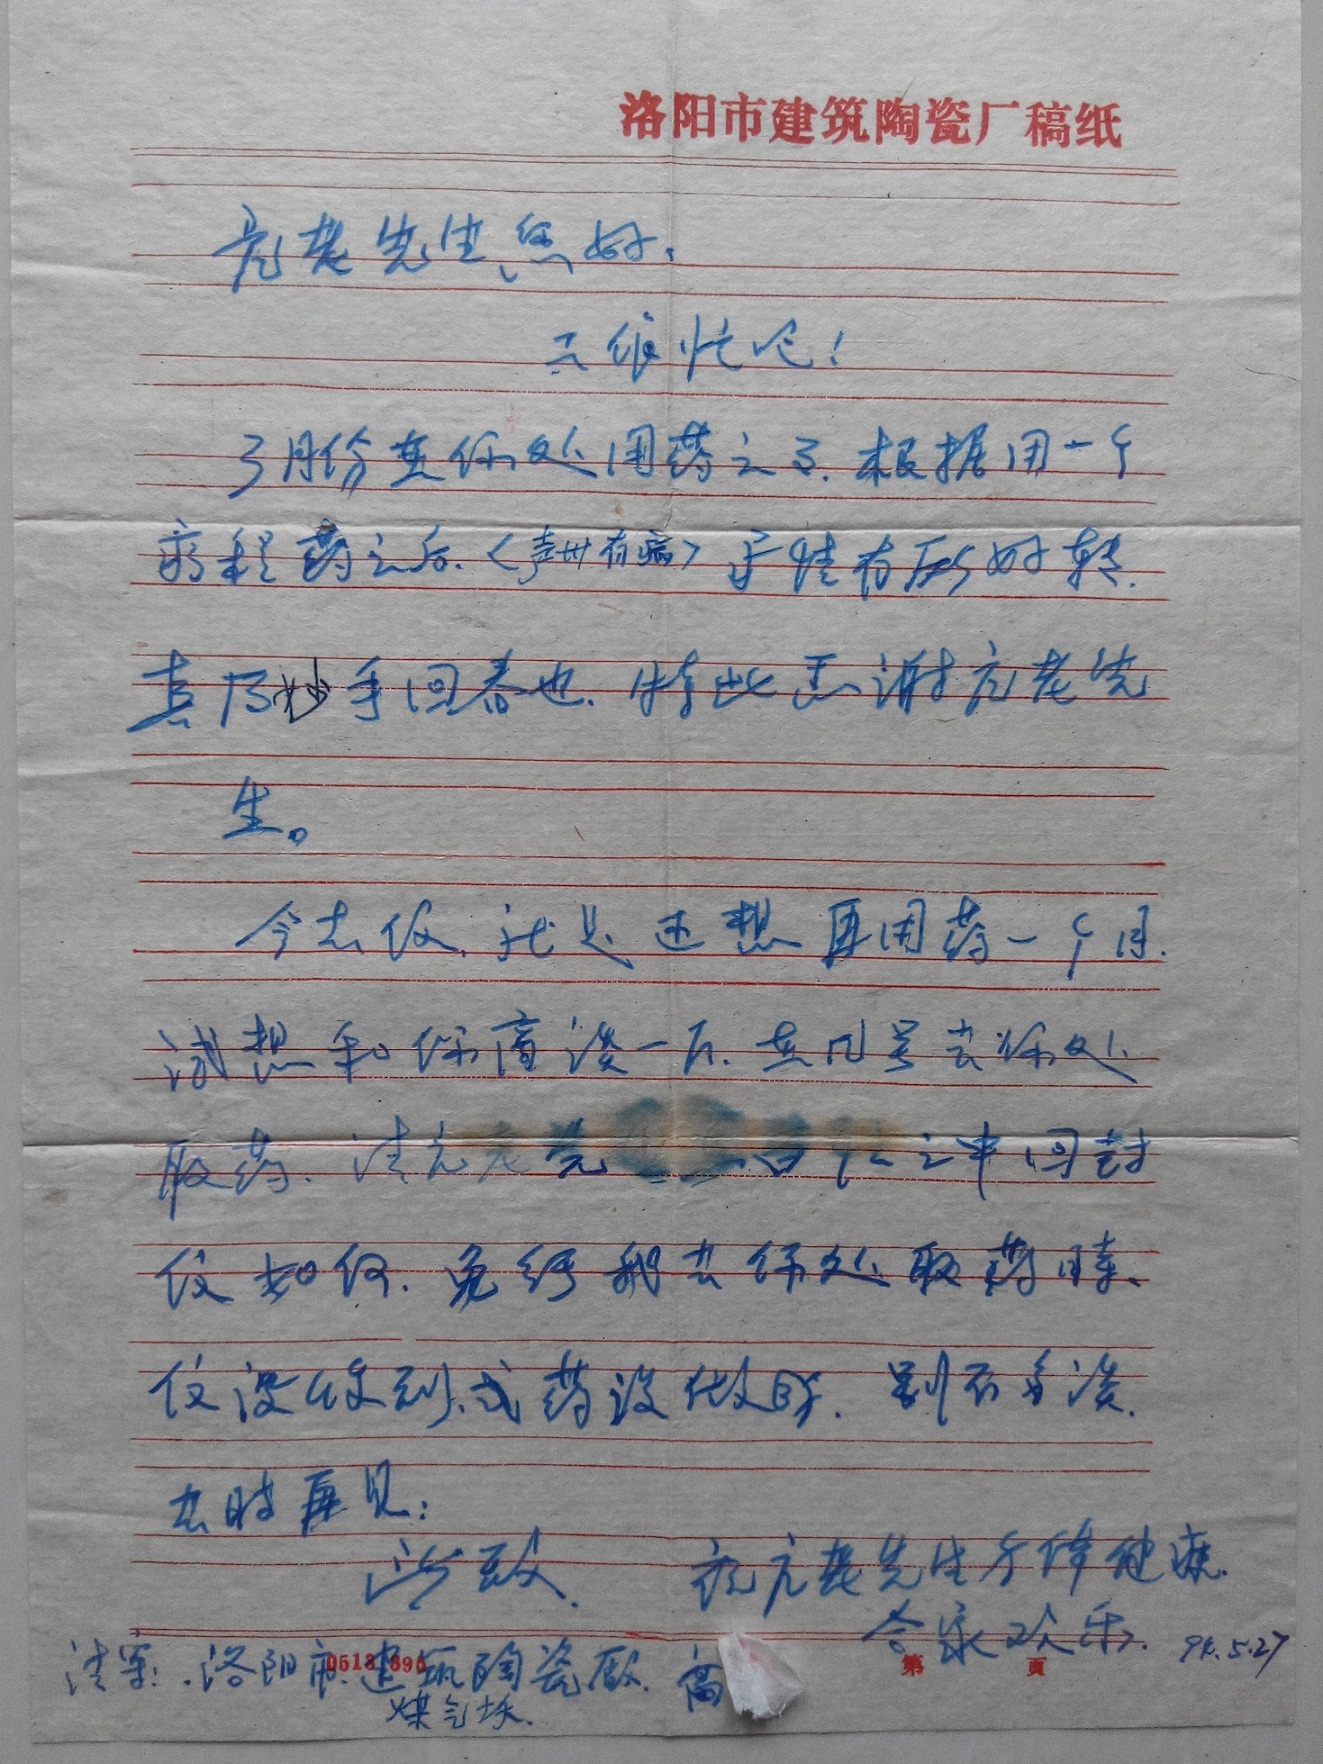 洛阳市建筑陶瓷厂稿纸
亢老先生您好:
工作忙吧!
3月份在你处用药之了.根据用一个
疗程药之后.〈声带有病〉产情有所好转.
真乃妙手回春也.特此感谢亢老先
生。
今去信,就是还想再用药一个月.
试想和你商谈一下.在几号去你处
取药.请亢老先 百忙之中回封
信如何.免得我去你处取药时、
信没收到,或药没做时.别不多谈.
去时再见:
此致. 祝亢老先生身体健康.
合家欢乐. 94.5.27
请寄:洛阳市建筑陶瓷厂.高
煤气站.
0518 890
第 页